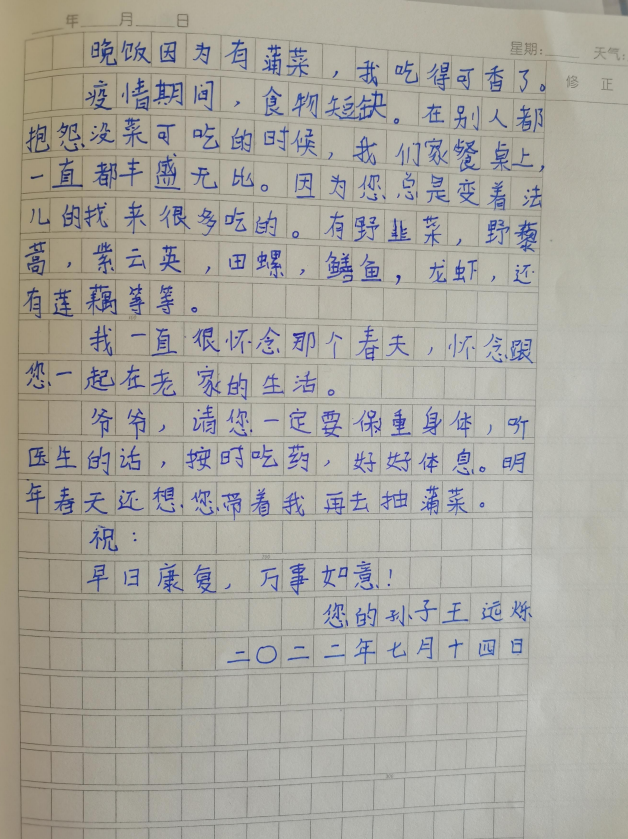 年 月 日
星期: 天气:
修 正
晚饭因为有蒲菜，我吃得可香了。
疫情期间，食物短缺。在别人都
抱怨没菜可吃的时候，我们家餐桌上，
一直都丰盛无比。因为您总是变着法
儿的找来很多吃的。有野韭菜，野藜
蒿，紫云英，田螺，鳝鱼，龙虾，还
有莲藕等等。
我一直很怀念那个春天，怀念跟
您一起在老家的生活。
爷爷，请您一定要保重身体，听
医生的话，按时吃药，好好体息。明
年春天还想您带着我再去抽蒲菜。
祝：
早日康复，万事如意！
您的孙子王远烁
二〇二二年七月十四日